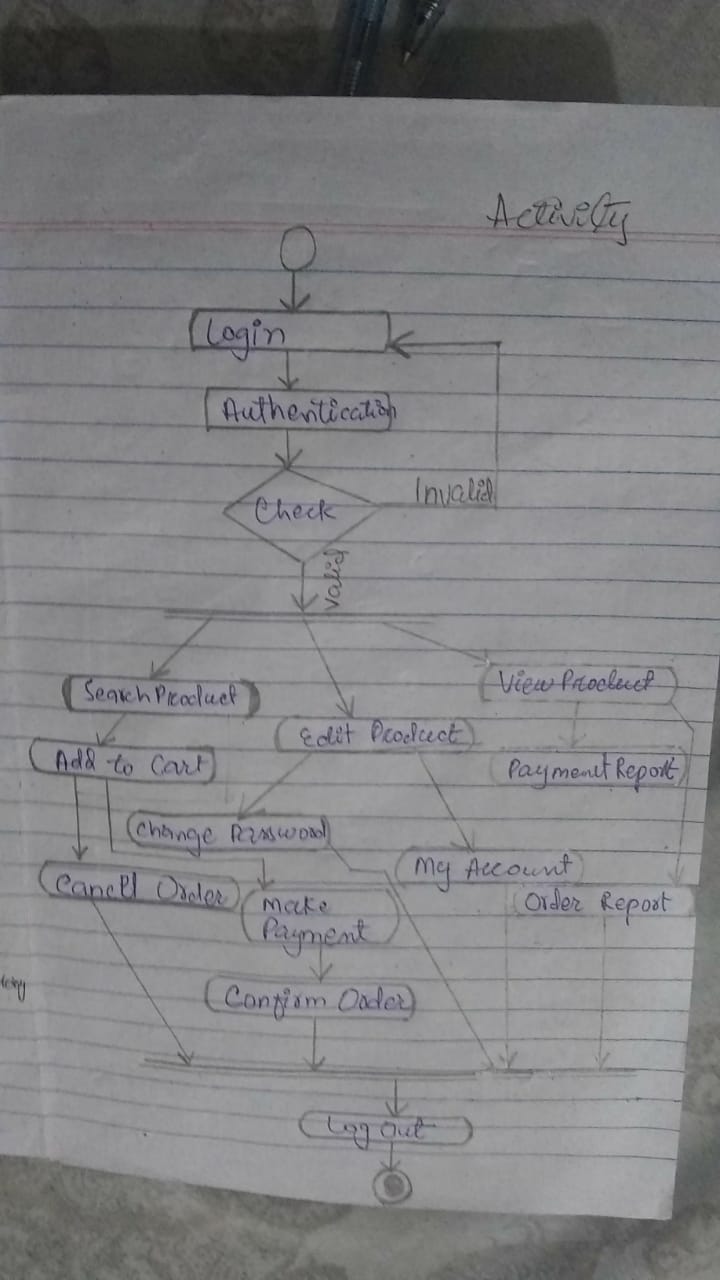 Activity
Login
Authentication
Check
Invalid
Valid
Search Product
View Product
Edit Product
Add to Cart
Payment Report
Change Password
My Account
Cancll Order
Order Report
Make
Payment
Confirm Order
Log Out